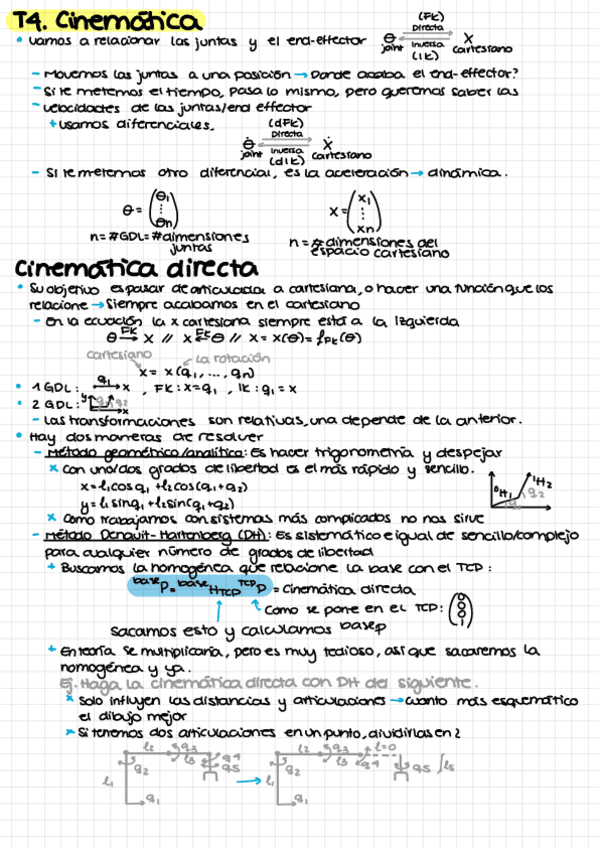 T4. Cinemática
• Vamos a relacionar las juntas y el end-effector θ joint (FK) Directa Inversa (IK) X cartesiano
- Movemos las juntas a una posición → Donde acaba el end-effector?
- Si le metemos el tiempo, pasa lo mismo, pero queremos saber las
- velocidades de las juntas/end effector
+ usamos diferenciales.
θ̇ joint (dFK) Directa Inversa (dIK) Ẋ cartesiano
- Si le metemos otro diferencial, es la aceleración → dinámica.
θ = (θ1 ⋮ θn) X = (x1 ⋮ xn)
n = #GDL = #dimensiones juntas
n = # dimensiones del espacio cartesiano
Cinemática directa
• Su objetivo es pasar de articulada a cartesiana, o hacer una función que los
relacione → Siempre acabamos en el cartesiano
- En la ecuación la x cartesiana siempre está a la izquierda
θ FK→ X // X FK← θ // X = X(θ) = fFK(θ)
cartesiano la rotación
X = X(q1, ..., qn)
• 1 GDL: q1 → x , FK: X = q1 , IK: q1 = x
• 2 GDL: y q1 q2 x
- Las transformaciones son relativas, una depende de la anterior.
• Hay dos maneras de resolver
- Método geométrico/analítico: Es hacer trigonometría y despejar
x Con uno/dos grados de libertad es el más rápido y sencillo.
x = l1cosq1 + l2cos(q1+q2)
y = l1sinq1 + l2sin(q1+q2)
0H1 1H2 q1 q2
x Como trabajamos con sistemas más complicados no nos sirve
- Método Denavit-Hartenberg (DH): Es sistemático e igual de sencillo/complejo
para cualquier número de grados de libertad
+ Buscamos la homogénea que relacione la base con el TCP:
base P = base H TCP TCP P = Cinemática directa
Como se pone en el TCP: (0 0 0 1)
Sacamos esto y calculamos base P
+ En teoría se multiplicaría, pero es muy tedioso, así que sacaremos la
homogénea y ya.
Ej. Haga la cinemática directa con DH del siguiente.
x Solo influyen las distancias y articulaciones → Cuanto más esquemático
el dibujo mejor
x Si tenemos dos articulaciones en un punto, dividirlas en 2
l2 q3 l3 q4 q5 q2 l1 q1 → l2 q3 l=0 l3 q4 q5 l5 q2 l1 q1